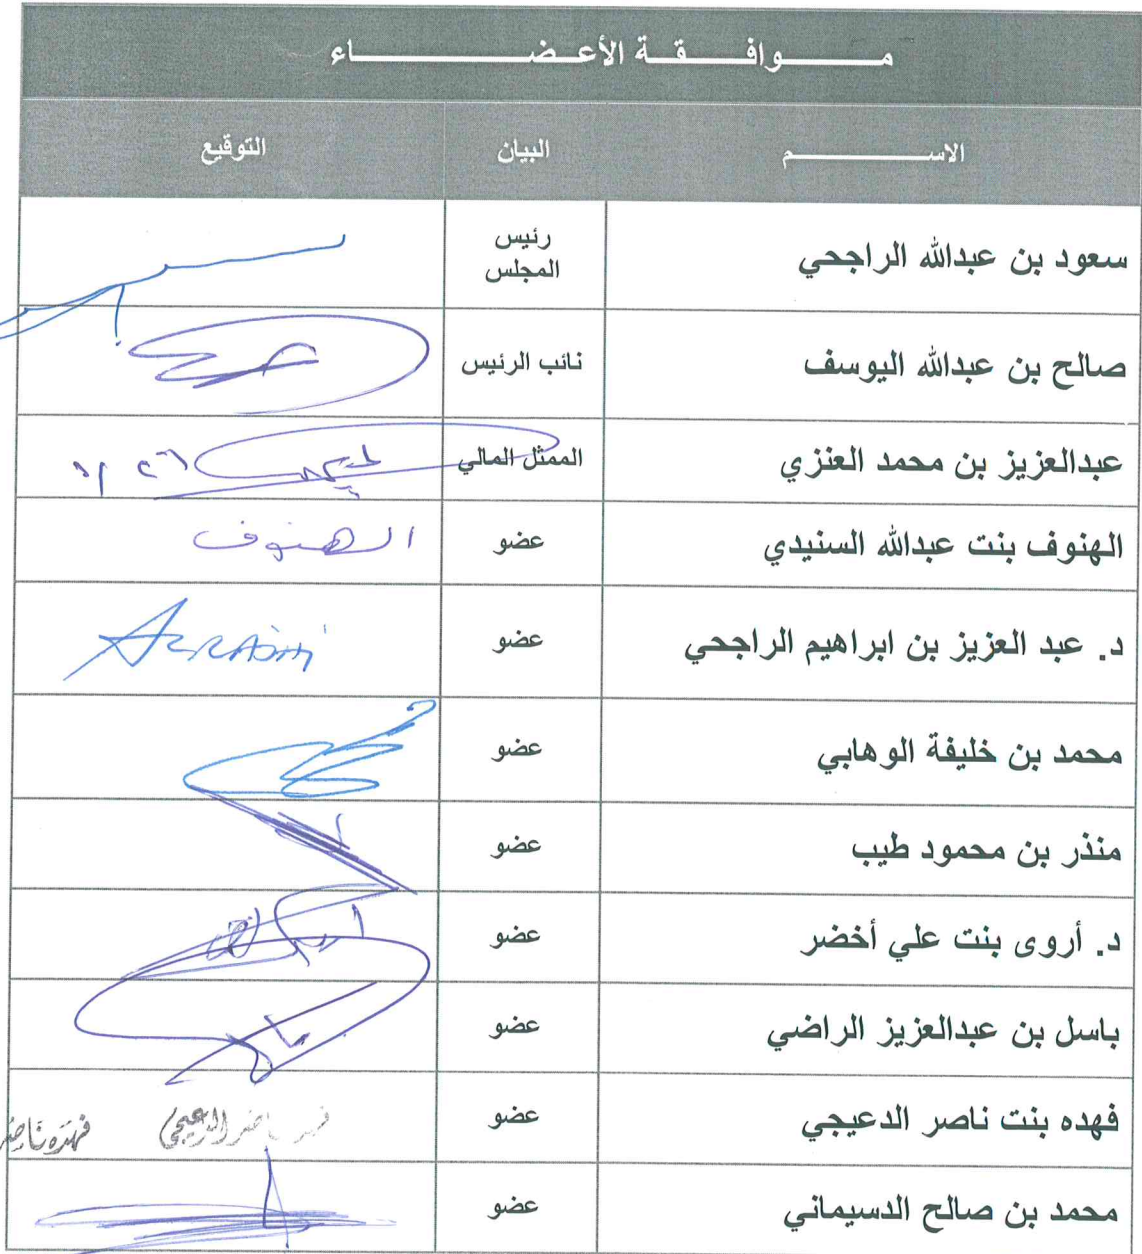 موافقة الأعضاء
الاسم البيان التوقيع
سعود بن عبدالله الراجحي رئيس المجلس
صالح بن عبدالله اليوسف نائب الرئيس
عبدالعزيز بن محمد العنزي الممثل المالي
الهنوف بنت عبدالله السنيدي عضو الهنوف
د. عبد العزيز بن ابراهيم الراجحي عضو
محمد بن خليفة الوهابي عضو
منذر بن محمود طيب عضو
د. أروى بنت علي أخضر عضو
باسل بن عبدالعزيز الراضي عضو
فهده بنت ناصر الدعيجي عضو فهده ناصر الدعيجي
محمد بن صالح الدسيماني عضو